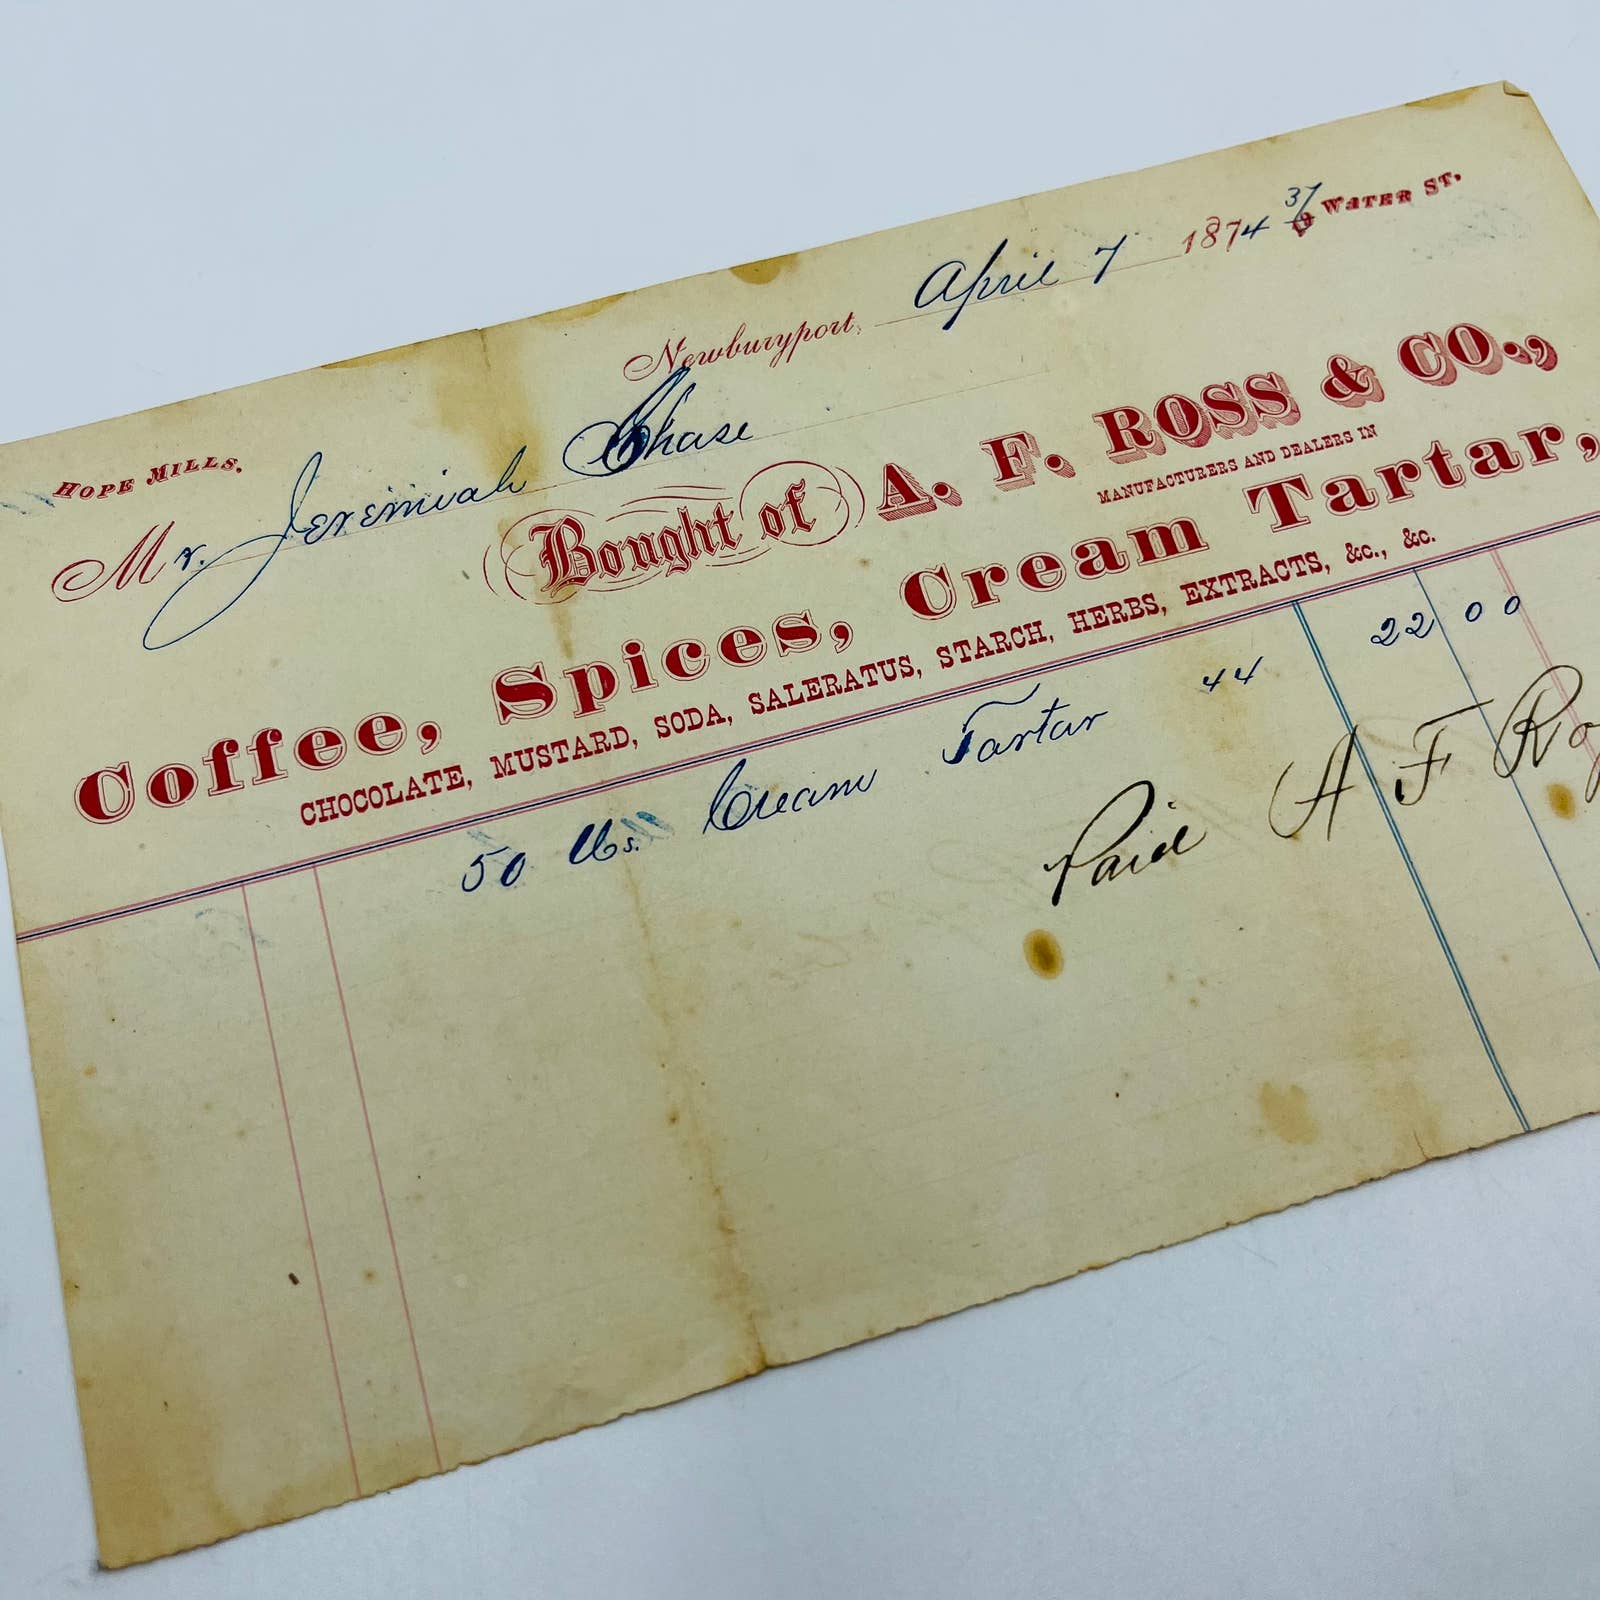 37 WATER ST.
Newburyport, April 7 1874
HOPE MILLS.
Mr. Jeremiah Chase
Bought of A. F. ROSS & CO.,
MANUFACTURERS AND DEALERS IN
Coffee, Spices, Cream Tartar,
CHOCOLATE, MUSTARD, SODA, SALERATUS, STARCH, HERBS, EXTRACTS, &c., &c.
50 lbs. Cream Tartar 44 22 00
Paid A F